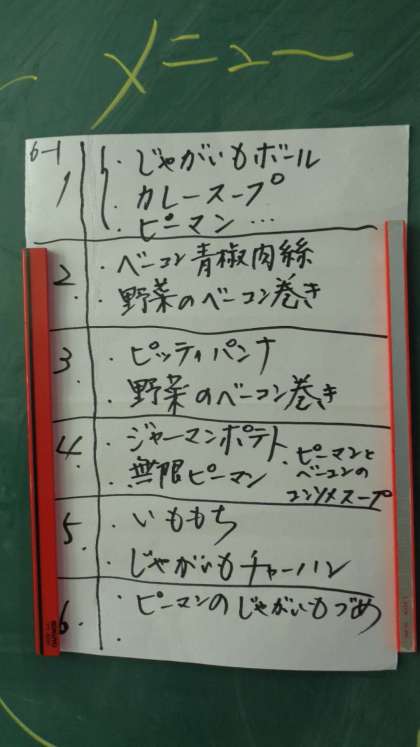 メニュー
6-1
1 ・じゃがいもボール
・カレースープ
・ピーマン…
2 ・ベーコン青椒肉絲
・野菜のベーコン巻き
3 ・ピッティパンナ
野菜のベーコン巻き
4. ・ジャーマンポテト
・無限ピーマン
・ピーマンと
ベーコンの
コンソメスープ
5. ・いももち
・じゃがいもチャーハン
6. ・ピーマンのじゃがいもづめ
・